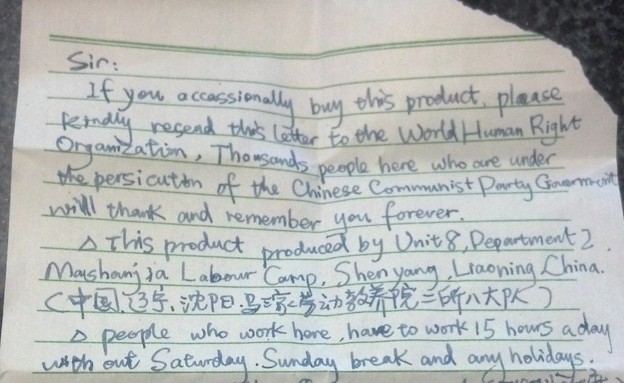 Sir:
If you occassionally buy this product, please
kindly resend this letter to the World Human Right
Organization, Thousands people here who are under
the persicution of the Chinese Communist Party Government
will thank and remember you forever.
△ This product produced by Unit 8, Department 2
Mashanjia Labour Camp, Shenyang, Liaoning, China.
(中国,辽宁,沈阳,马三家劳动教养院二所八大队)
△ people who work here, have to work 15 hours a day
with out Saturday. Sunday break and any holidays.